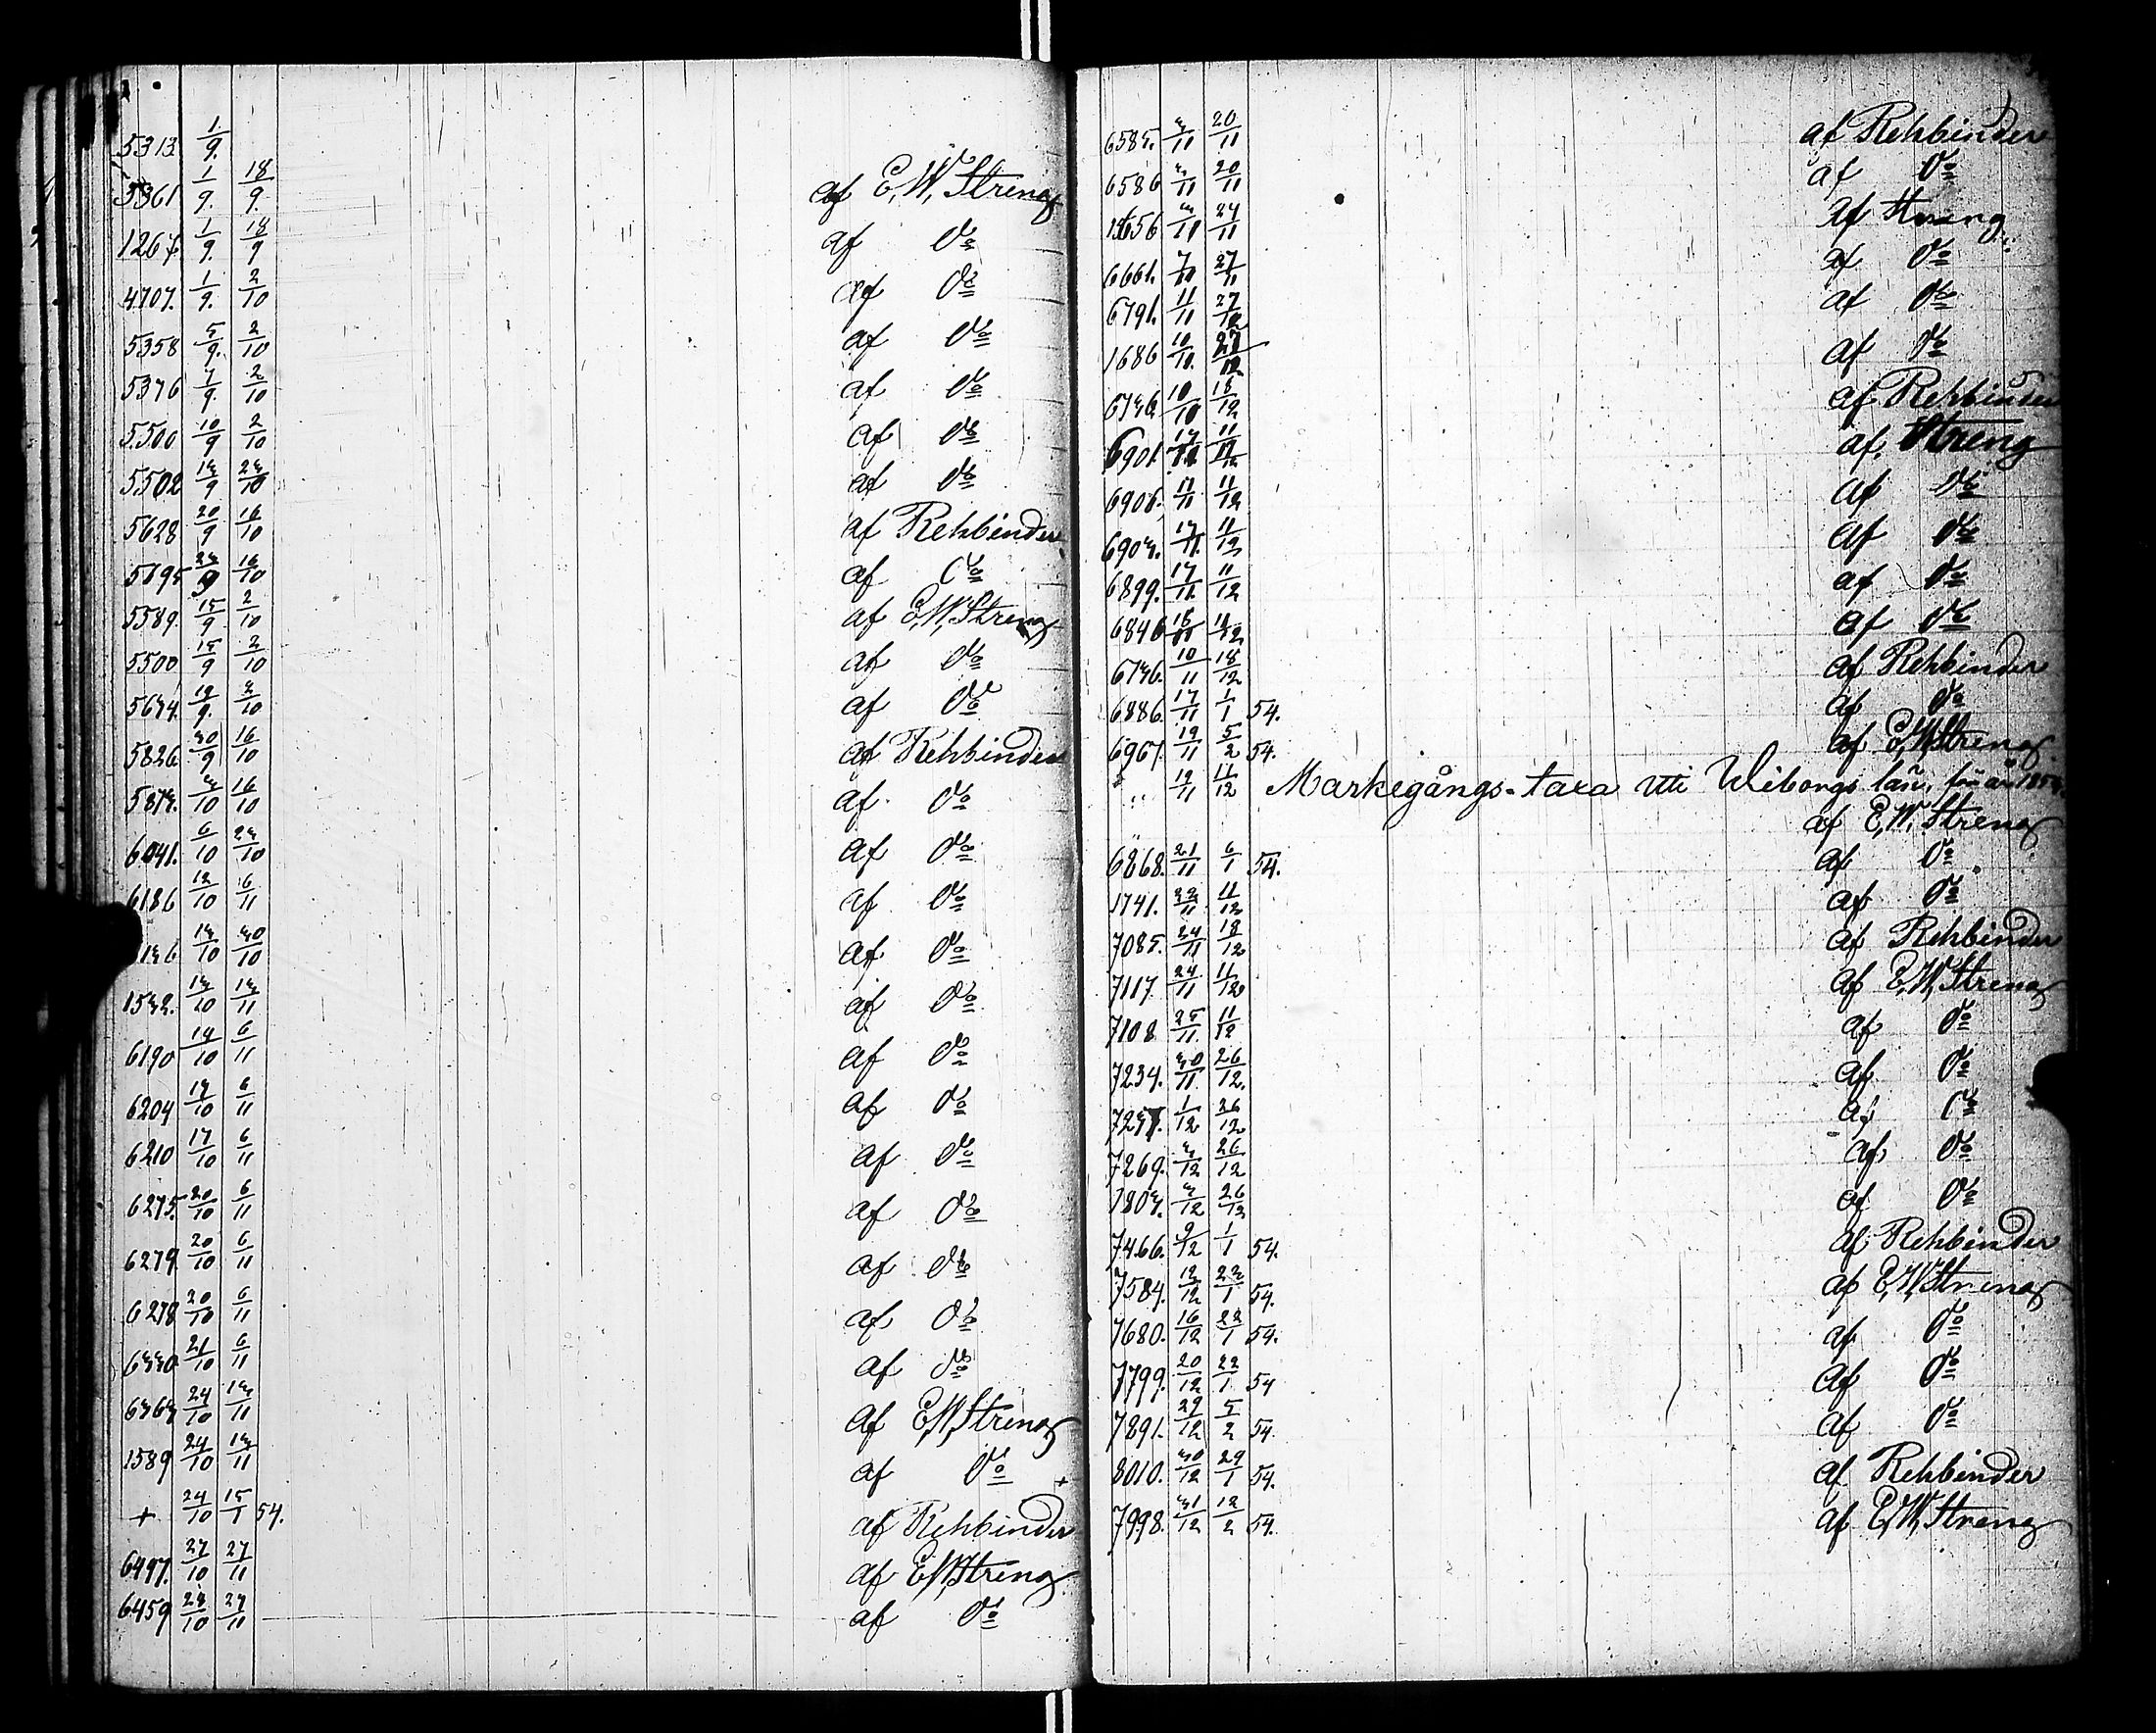 5313 1/9.
5361 1/9. 18/9. af E. W. Streng
1267. 1/9. 18/9 af D:o
4707. 1/9. 2/10 af D:o
5358 5/9. 2/10 af D:o
5376 7/9. 2/10 af D:o
5500 10/9 2/10 af D:o
5502 13/9 23/10 af D:o
5628 20/9 16/10 af Rehbinder
5795 23/9 16/10 af D:o
5589. 15/9 2/10 af E. W. Streng
5500 15/9 2/10 af D:o
5674. 19/9. 3/10 af D:o
5826 30/9 16/10 af Rehbinder
5873. 3/10 16/10 af D:o
6041. 6/10 23/10 af D:o
6186 12/10 6/11 af D:o
13/10 30/10 af D:o
1532. 13/10 13/11 af D:o
6190 14/10 6/11 af D:o
6204 14/10 6/11 af D:o
6210 17/10 6/11 af D:o
6275. 20/10 6/11 af D:o
6279 20/10 6/11 af D:o
6278 20/10 6/11 af D:o
6330 21/10 6/11 af D:o
6363 24/10 13/11 af E. W. Streng
1589 24/10 13/11 af D:o +
+ 24/10 15/1 54. af Rehbinder
6497. 27/10 27/11 af E. W. Streng
6459 28/10 27/11 af D:o
6585. 3/11 20/11 af Rehbinder
6586 3/11 20/11 af D:o
1656 3/11 24/11 af Streng
6661. 7/11 27/11 af D:o
6791. 11/11 27/12 af D:o
1686 10/10. 27/12 af D:o
6736 10/10 18/12 af Rehbinder
6901. 17/11 11/12 af Streng
6906. 11/11 11/12 af D:o
6903. 17/11. 11/12 af D:o
6899. 17/11. 11/12 af D:o
6846 16/11 11/12 af D:o
6736. 10/11 18/12 af Rehbinder
6886. 17/11 1/1 54. af D:o
6967. 19/11 5/2 54. af E. W. Streng
19/11 11/12 Markegångs-taxa uti Wiborgs län, för år 1853.
af E. W. Streng
6868. 21/11 6/1 54. af D:o
1741. 22/11 11/12 af D:o
7085. 24/11 18/12 af Rehbinder
7117 24/11 11/12 af E. W. Streng
7108 25/11. 11/12 af D:o
7234. 30/11. 26/12. af D:o
7237. 1/12 26/12 af D:o
7269. 3/12 26/12 af D:o
1803. 3/12 26/12 af D:o
7466. 9/12 1/1 54. af Rehbinder
7584. 12/12 22/1 54. af E. W. Streng
7680. 16/12 22/1 54. af D:o
7799. 20/12 22/1 54 af D:o
7891. 29/12 5/2 54. af D:o
8010. 30/12 29/1 54. af Rehbinder
7998. 31/12 12/2 54. af E. W. Streng